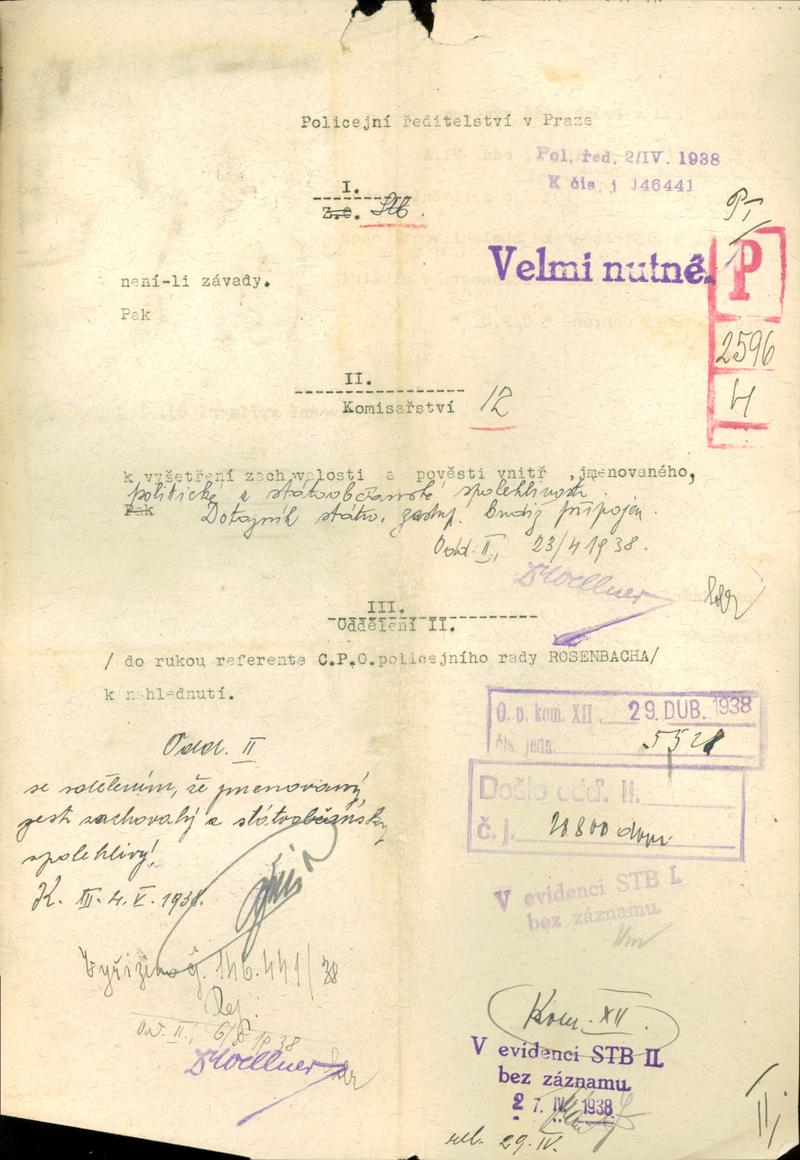 Policejní ředitelství v Praze
Pol. řed. 2/IV. 1938
K čís. j 146441
I.
Z.O.
Velmi nutné.
P
2596
není-li závady.
Pak
II.
Komisařství 12
k vyšetření zachovalosti a pověsti vnitř. jmenovaného,
politické a státoobčanské spolehlivosti.
Pak Dotazník státn. zastup. budiž připojen.
Odd. II, 23/4 1938.
Dr Woellner
III.
Oddělení II.
/ do rukou referenta C.P.O.policejního rady ROSENBACHA/
k nahlédnutí.
O. p. kom. XII. 29. DUB. 1938
čís. jedn. 5528
Odd. II
se sdělením, že jmenovaný
jest zachovalý a státoobčansky
spolehlivý.
K. XII. 4. V. 1938.
Došlo odd. II.
č. j. 20800
V evidenci STB I.
bez záznamu.
Vyřízeno č. 146.441/38
Odd. II, 1938
Dr Woellner
Kom. XII.
V evidenci STB II.
bez záznamu.
27. IV. 1938
29. IV.
II